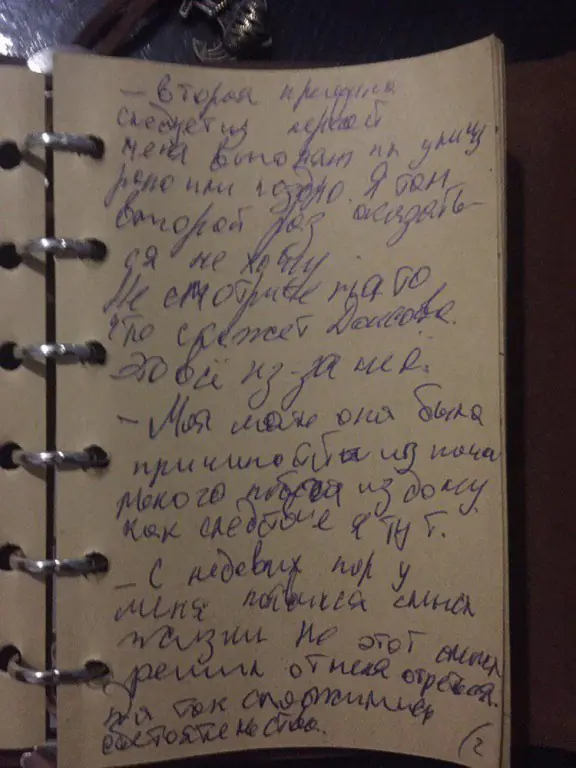 - вторая причина
следует из первой
меня выгонят на улицу
рано или поздно. Я там
второй раз оказать-
ся не хочу.
Не смотрите на то
что скажет
это всё из-за неё.
- Моя мать она была
причиной из поча
моего побега из дому
как следствие я тут.
- С недавних пор у
меня появился смысл
жизни но этот смысл
решил от меня отречься.
так сложились
обстоятельства.
(2